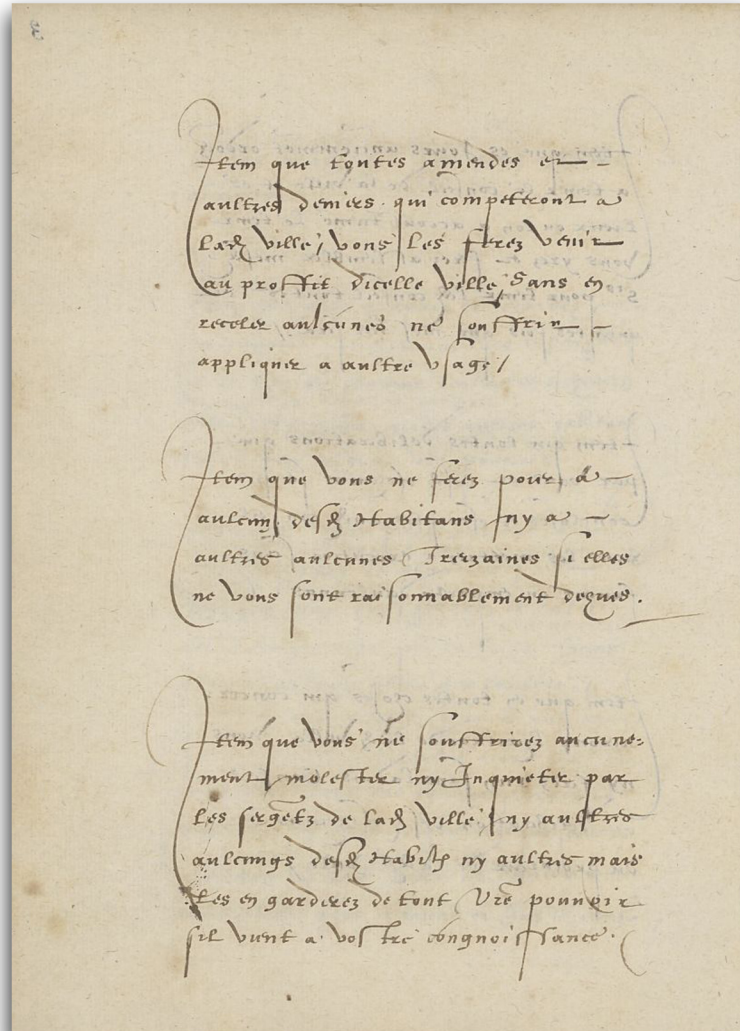 3
Item que toutes amendes et
aultres deniers qui competeront a
lad ville / vous les ferez venir
au proffit dicelle ville, Sans en
receler aulcunes ne souffrir
appliquer a aultre usage /
Item que vous ne ferez poier a
aulcun desd Habitans ny a
aultres aulcunes Trezaines si elles
ne vous sont raisonnablement deues.
Item que vous ne souffrirez aucune-
ment molester ny Inquieter par
les sergetz de lad ville ny aultres
aulcungs desd Habit ny aultres mais
les en garderez de tout vre pouuoir
sil vient a vostre congnoissance.